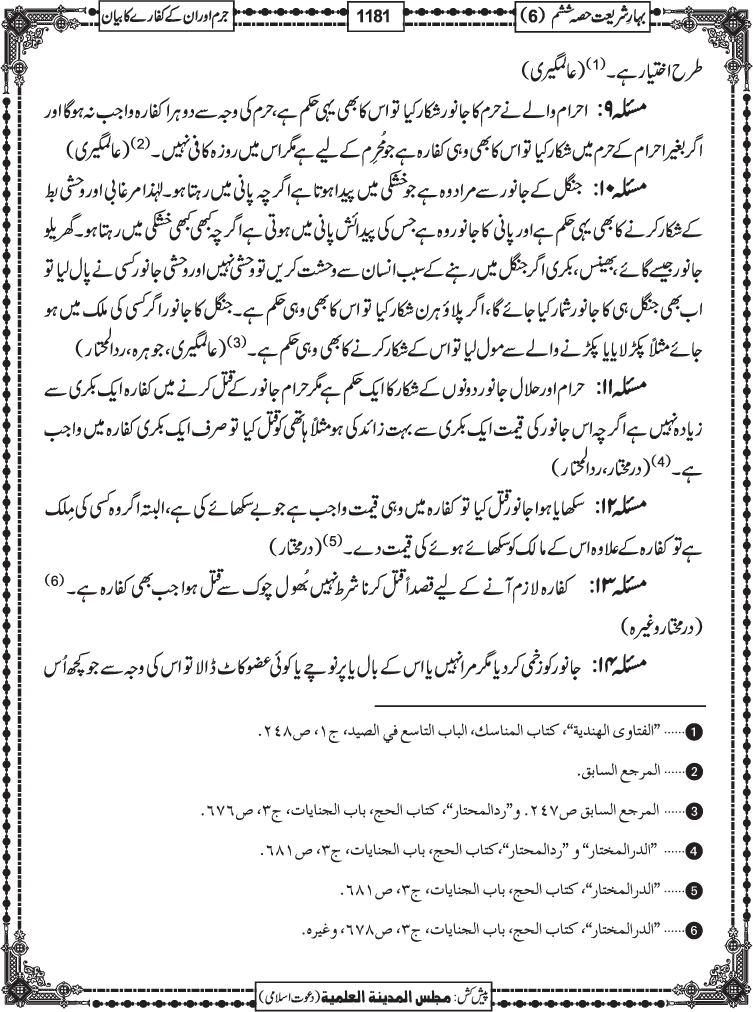 بہارِشریعت حصہ ششم (6)
1181
جرم اور ان کے کفارے کا بیان
طرح اختیار ہے۔ (1) (عالمگیری)
مسئلہ ۹: احرام والے نے حرم کا جانور شکار کیا تو اس کا بھی یہی حکم ہے، حرم کی وجہ سے دوہرا کفارہ واجب نہ ہوگا اور
اگر بغیر احرام کے حرم میں شکار کیا تو اس کا بھی وہی کفارہ ہے جو مُحرِم کے لیے ہے مگر اس میں روزہ کافی نہیں۔ (2) (عالمگیری)
مسئلہ ۱۰: جنگل کے جانور سے مراد وہ ہے جو خشکی میں پیدا ہوتا ہے اگرچہ پانی میں رہتا ہو۔ لہٰذا مرغابی اور وحشی بط
کے شکار کرنے کا بھی یہی حکم ہے اور پانی کا جانور وہ ہے جس کی پیدائش پانی میں ہوتی ہے اگرچہ کبھی کبھی خشکی میں رہتا ہو۔ گھریلو
جانور جیسے گائے، بھینس، بکری اگر جنگل میں رہنے کے سبب انسان سے وحشت کریں تو وحشی نہیں اور وحشی جانور کسی نے پال لیا تو
اب بھی جنگل ہی کا جانور شمار کیا جائے گا، اگر پلاؤ ہرن شکار کیا تو اس کا بھی وہی حکم ہے۔ جنگل کا جانور اگر کسی کی ملک میں ہو
جائے مثلاً پکڑ لایا یا پکڑنے والے سے مول لیا تو اس کے شکار کرنے کا بھی وہی حکم ہے۔ (3) (عالمگیری، جوہرہ، ردالمحتار)
مسئلہ ۱۱: حرام اور حلال جانور دونوں کے شکار کا ایک حکم ہے مگر حرام جانور کے قتل کرنے میں کفارہ ایک بکری سے
زیادہ نہیں ہے اگرچہ اس جانور کی قیمت ایک بکری سے بہت زائد کی ہو مثلاً ہاتھی کو قتل کیا تو صرف ایک بکری کفارہ میں واجب
ہے۔ (4) (درمختار، ردالمحتار)
مسئلہ ۱۲: سکھایا ہوا جانور قتل کیا تو کفارہ میں وہی قیمت واجب ہے جو بے سکھائے کی ہے، البتہ اگر وہ کسی کی مِلک
ہے تو کفارہ کے علاوہ اس کے مالک کو سکھائے ہوئے کی قیمت دے۔ (5) (درمختار)
مسئلہ ۱۳: کفارہ لازم آنے کے لیے قصداً قتل کرنا شرط نہیں بُھول چوک سے قتل ہوا جب بھی کفارہ ہے۔ (6)
(درمختار وغیرہ)
مسئلہ ۱۴: جانور کو زخمی کر دیا مگر مرا نہیں یا اس کے بال یا پر نوچے یا کوئی عضو کاٹ ڈالا تو اس کی وجہ سے جو کچھ اُس
1 ...... ”الفتاوی الهندية“، کتاب المناسك، الباب التاسع في الصيد، ج۱، ص۲۴۸.
2 ...... المرجع السابق.
3 ...... المرجع السابق ص۲۴۷. و”ردالمحتار“، کتاب الحج، باب الجنایات، ج۳، ص۶۷۶.
4 ...... ”الدرالمختار“ و ”ردالمحتار“، کتاب الحج، باب الجنایات، ج۳، ص۶۸۱.
5 ...... ”الدرالمختار“، کتاب الحج، باب الجنایات، ج۳، ص۶۸۱.
6 ...... ”الدرالمختار“، کتاب الحج، باب الجنایات، ج۳، ص۶۷۸، وغیرہ.
پیش کش: مجلس المدینة العلمیة (دعوت اسلامی)